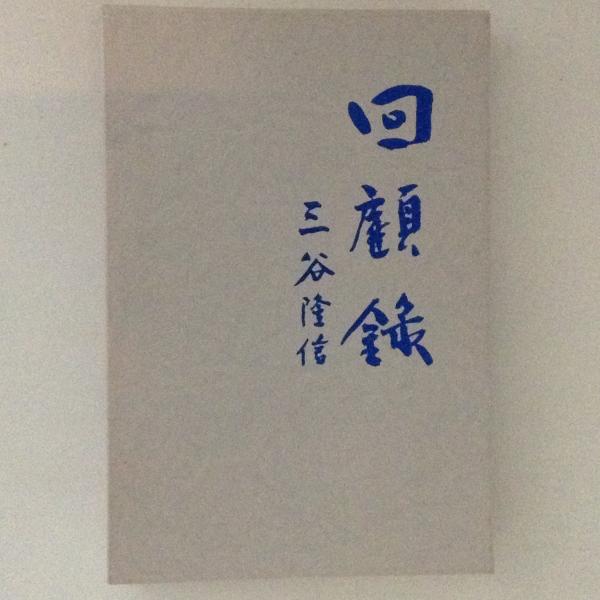 回顧録
三谷隆信